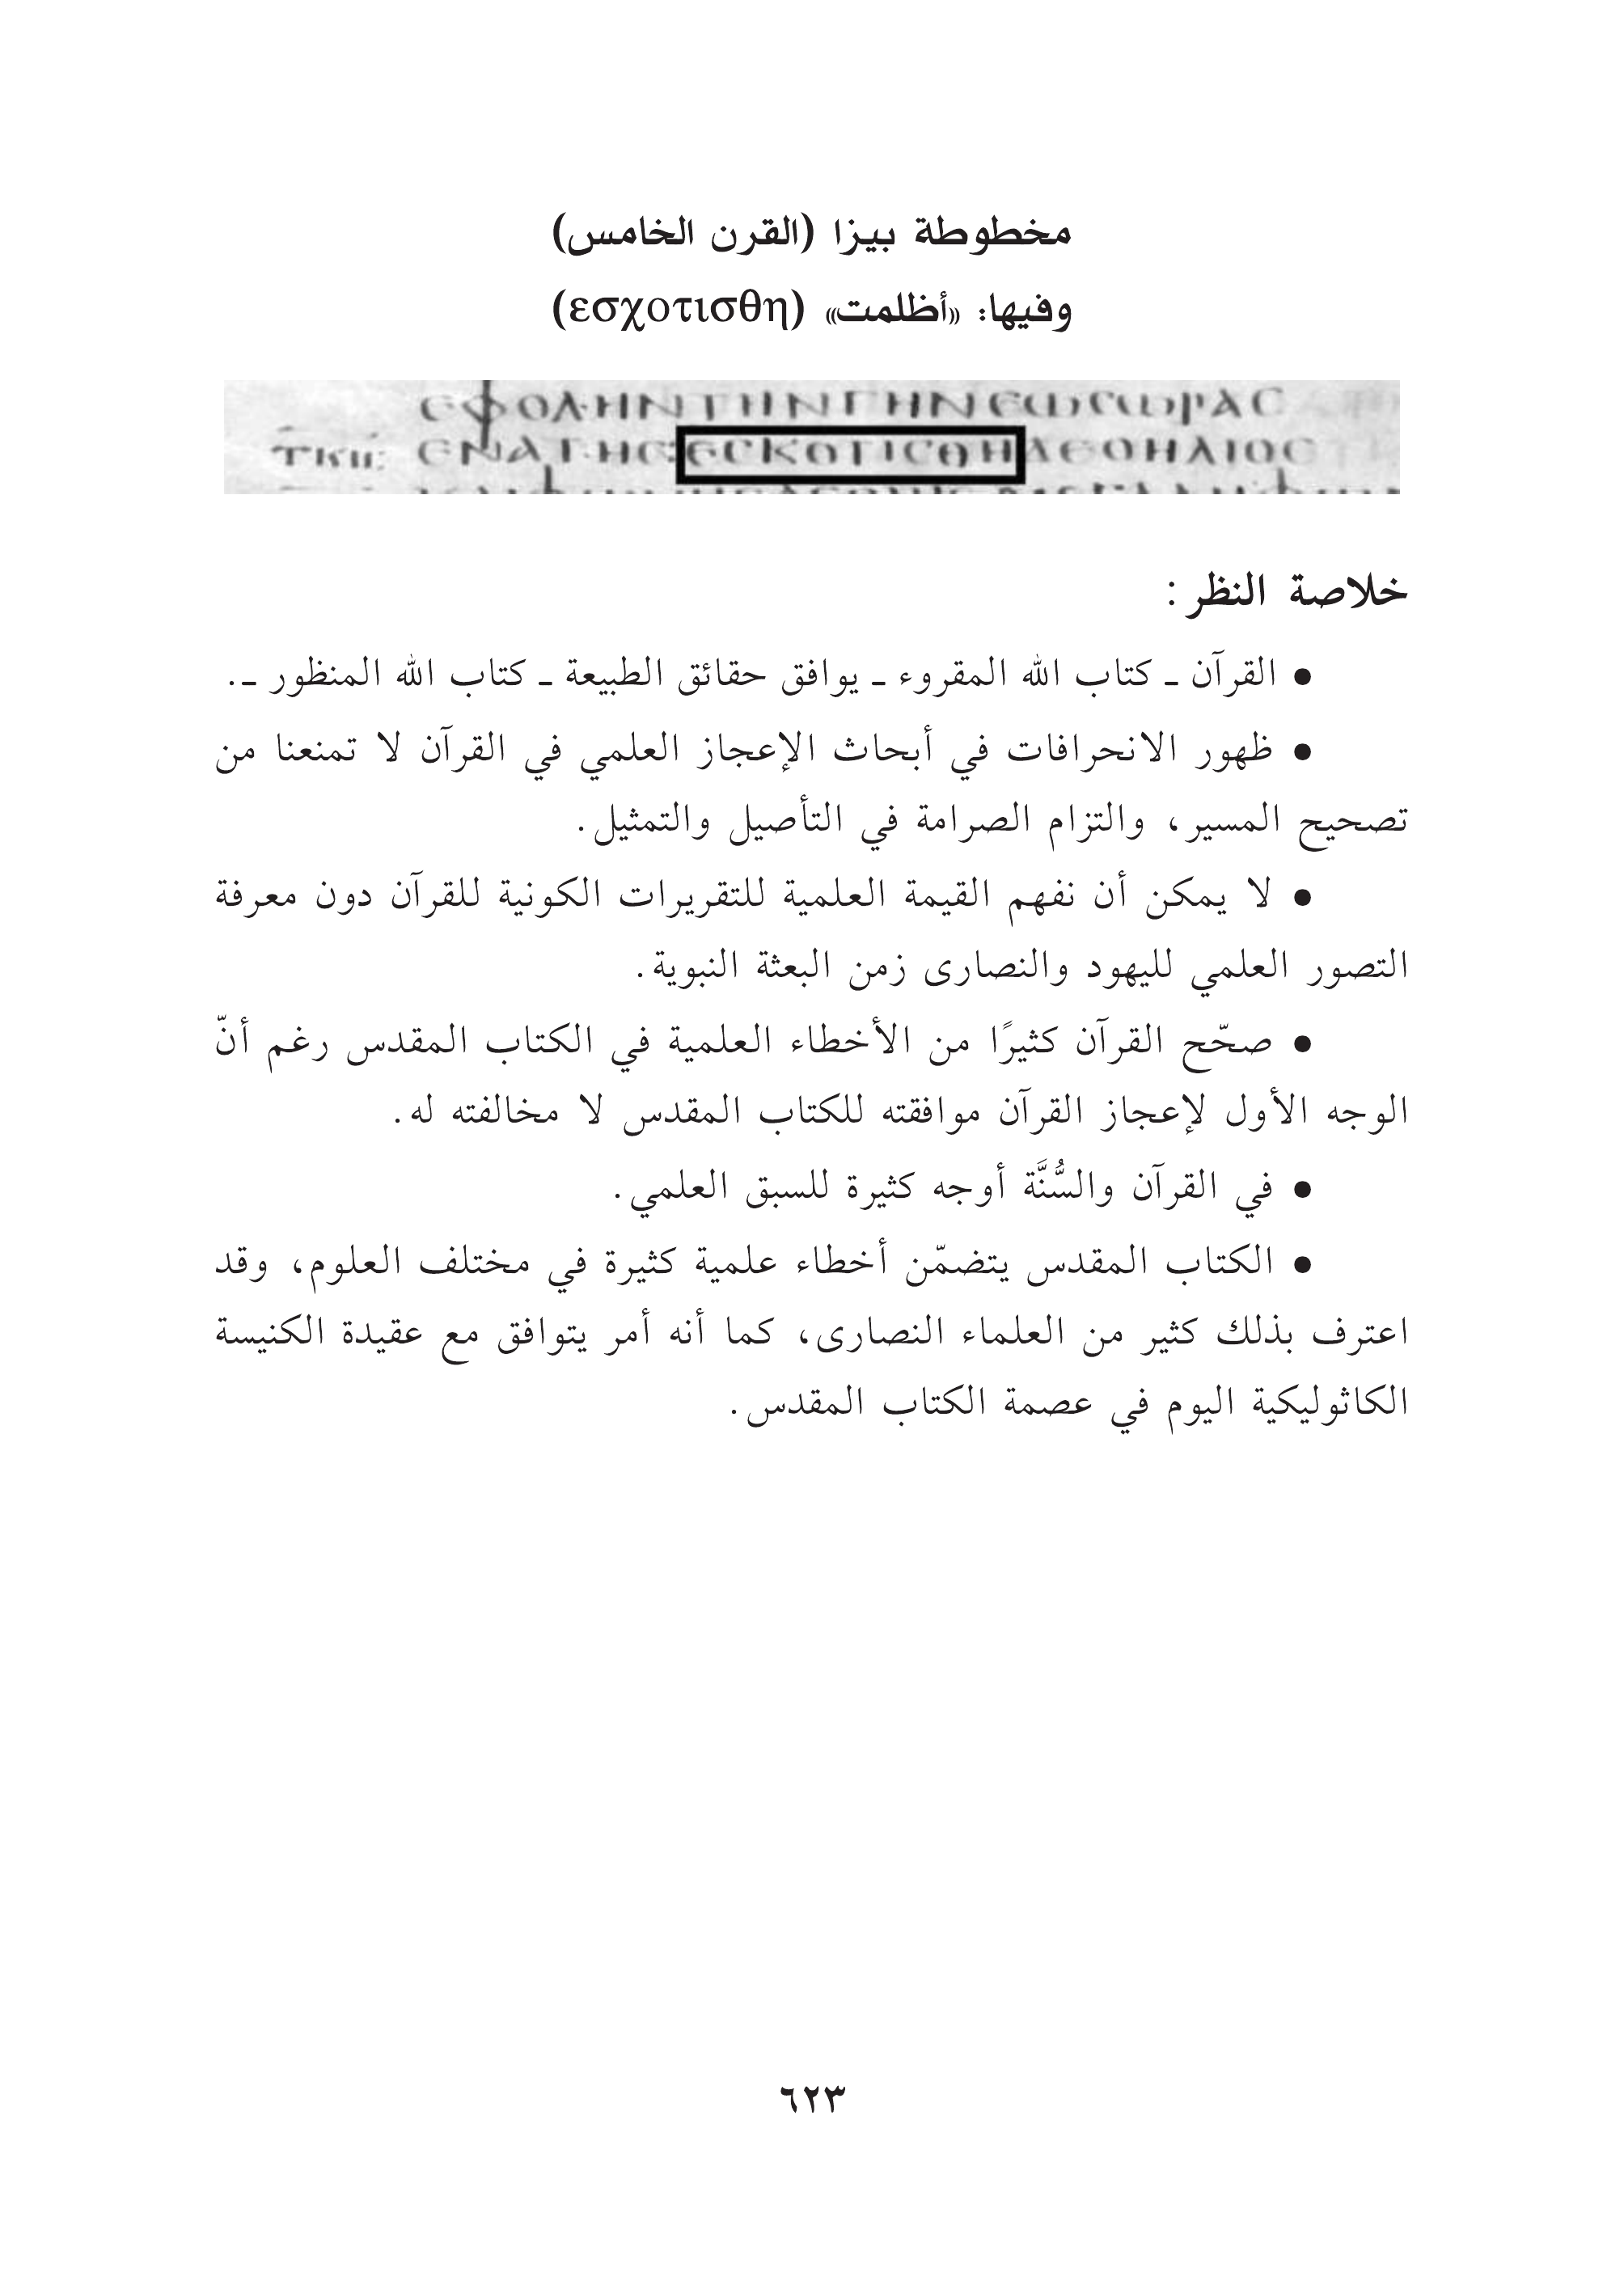 مخطوطة بيزا (القرن الخامس)
وفيها: «أظلمت» (εσχοτισθη)
ΕΦΟΛΗΝΤΗΝΓΗΝΕΩΣΩΡΑΣ
ΕΝΑΤΗΣ:ΕΣΚΟΤΙΣΘΗΔΕΟΗΛΙΟΣ
خلاصة النظر:
● القرآن ـ كتاب الله المقروء ـ يوافق حقائق الطبيعة ـ كتاب الله المنظور ـ.
● ظهور الانحرافات في أبحاث الإعجاز العلمي في القرآن لا تمنعنا من
تصحيح المسير، والتزام الصرامة في التأصيل والتمثيل.
● لا يمكن أن نفهم القيمة العلمية للتقريرات الكونية للقرآن دون معرفة
التصور العلمي لليهود والنصارى زمن البعثة النبوية.
● صحّح القرآن كثيرًا من الأخطاء العلمية في الكتاب المقدس رغم أنّ
الوجه الأول لإعجاز القرآن موافقته للكتاب المقدس لا مخالفته له.
● في القرآن والسُّنَّة أوجه كثيرة للسبق العلمي.
● الكتاب المقدس يتضمّن أخطاء علمية كثيرة في مختلف العلوم، وقد
اعترف بذلك كثير من العلماء النصارى، كما أنه أمر يتوافق مع عقيدة الكنيسة
الكاثوليكية اليوم في عصمة الكتاب المقدس.
٦٢٣